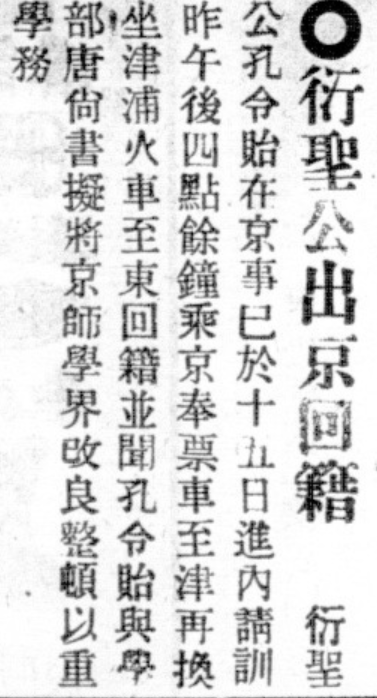 ●衍聖公出京回籍　衍聖
公孔令貽在京事已於十五日進內請訓
昨午後四點餘鐘乘京奉票車至津再換
坐津浦火車至東回籍並聞孔令貽與學
部唐尙書擬將京師學界改良整頓以重
學務